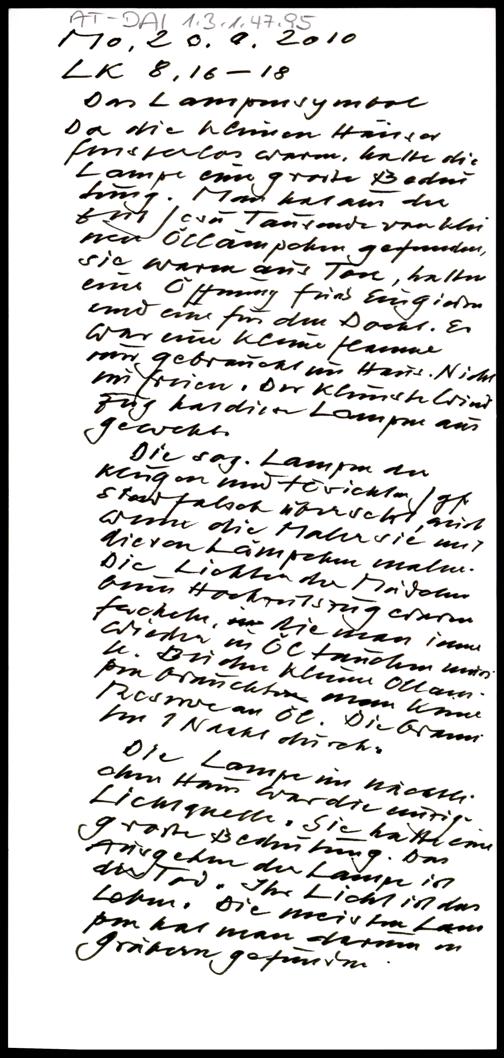 AT-DAI 1.3.1.47.95
Mo, 20. 9. 2010
LK 8,16-18
Das Lampensymbol
Da die kleinen Häuser
fensterlos waren, hatte die
Lampe eine grosse Bedeu
tung. Man hat aus der
Zeit Jesu Tausende von klei
nen Öllämpchen gefunden,
sie waren aus Ton, hatten
eine Öffnung fürs Eingiessen
und eine für den Docht. Es
war eine kleine Flamme
nur gebraucht im Haus. Nicht
im Freien. Der kleinste Wind
zug hat diese Lampen aus
geweht.
Die sog. Lampen der
klugen und törichten Jgf
sind falsch übersetzt, auch
wenn die Maler sie mit
diesen Lämpchen malen.
Die Lichter der Mädchen
beim Hochzeitszug waren
Fackeln, die man immer
wieder in Öl tauchen muss
te. Bei den kleinen Öllam-
pen brauchte man keine
Reserve an Öl. Die brann
ten 1 Nacht durch.
Die Lampe im nächtli-
chen Haus war die einzige
Lichtquelle. Sie hatte eine
grosse Bedeutung. Das
Ausgehen der Lampe ist
der Tod. Ihr Licht ist das
Leben. Die meisten Lam
pen hat man darum in
Gräbern gefunden.